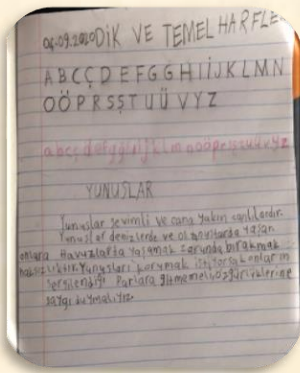 04.09.2020 DİK VE TEMEL HARFLER
A B C Ç D E F G Ğ H I İ J K L M N
O Ö P R S Ş T U Ü V Y Z
a b c ç d e f g ğ h ı i j k l m n o ö p r s ş t u ü v y z
YUNUSLAR
Yunuslar sevimli ve cana yakın canlılardır.
Yunuslar denizlerde ve okyanuslarda yaşar
onlara Havuzlarda yaşamak zorunda bırakmak
haksızlıktır. Yunusları korumak istiyorsak onların
sergilendiği Parlara gitmemeli, özgürlüklerine
saygı duymalıyız.